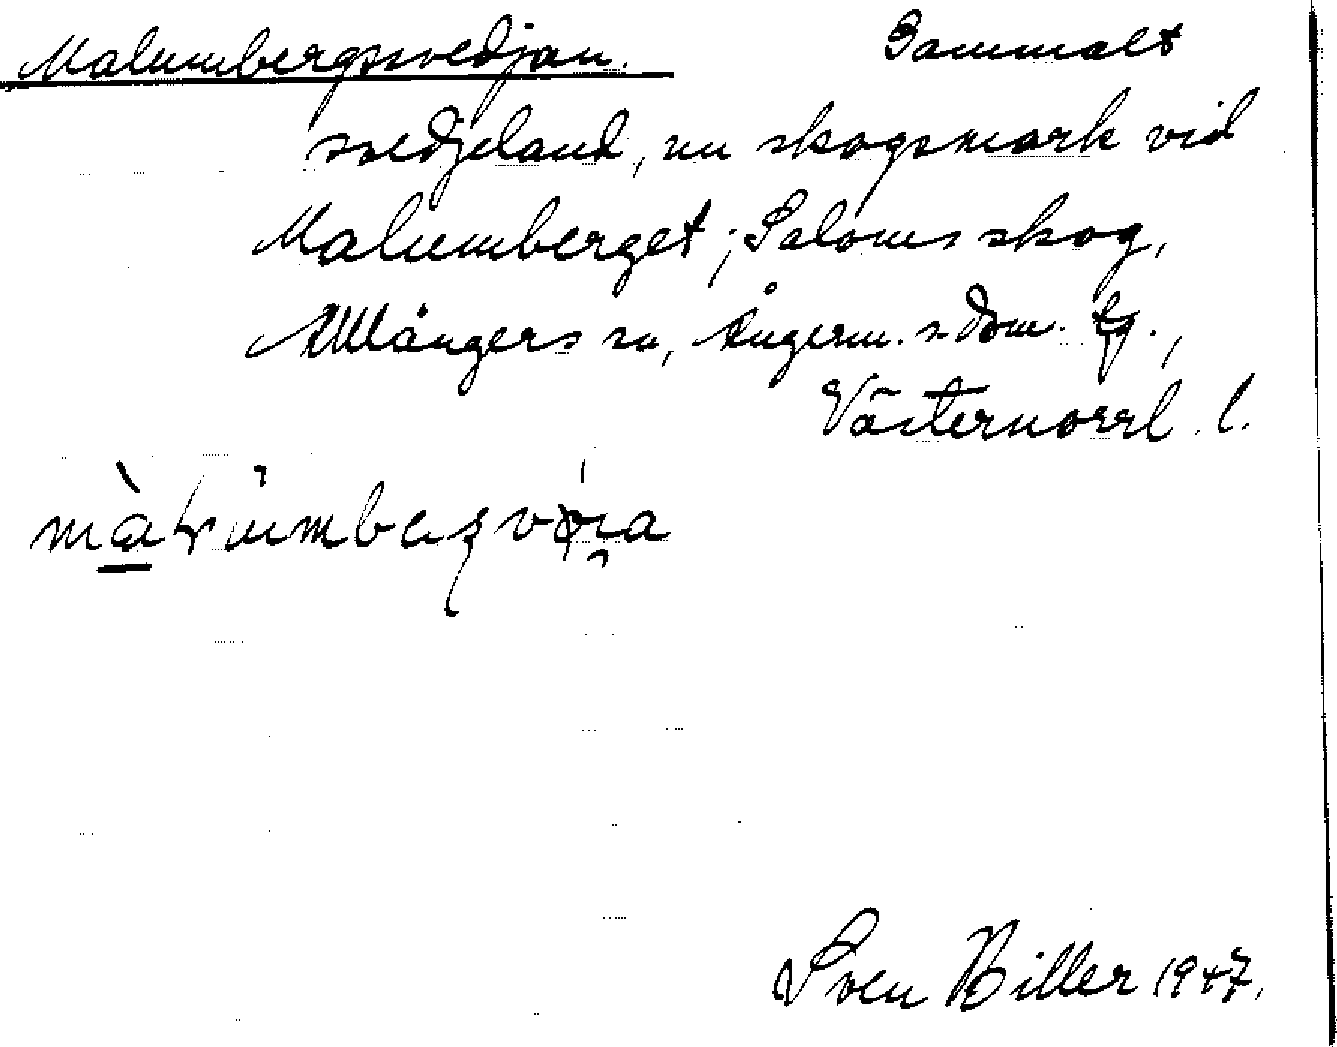 Malumbergssvedjan. Gammalt
svedjeland, nu skogsmark vid
Malumberget; Saloms skog,
Ullångers sn, Ångerm. s dom. tg.,
Västernorrl. l.
Sven Biller 1947.